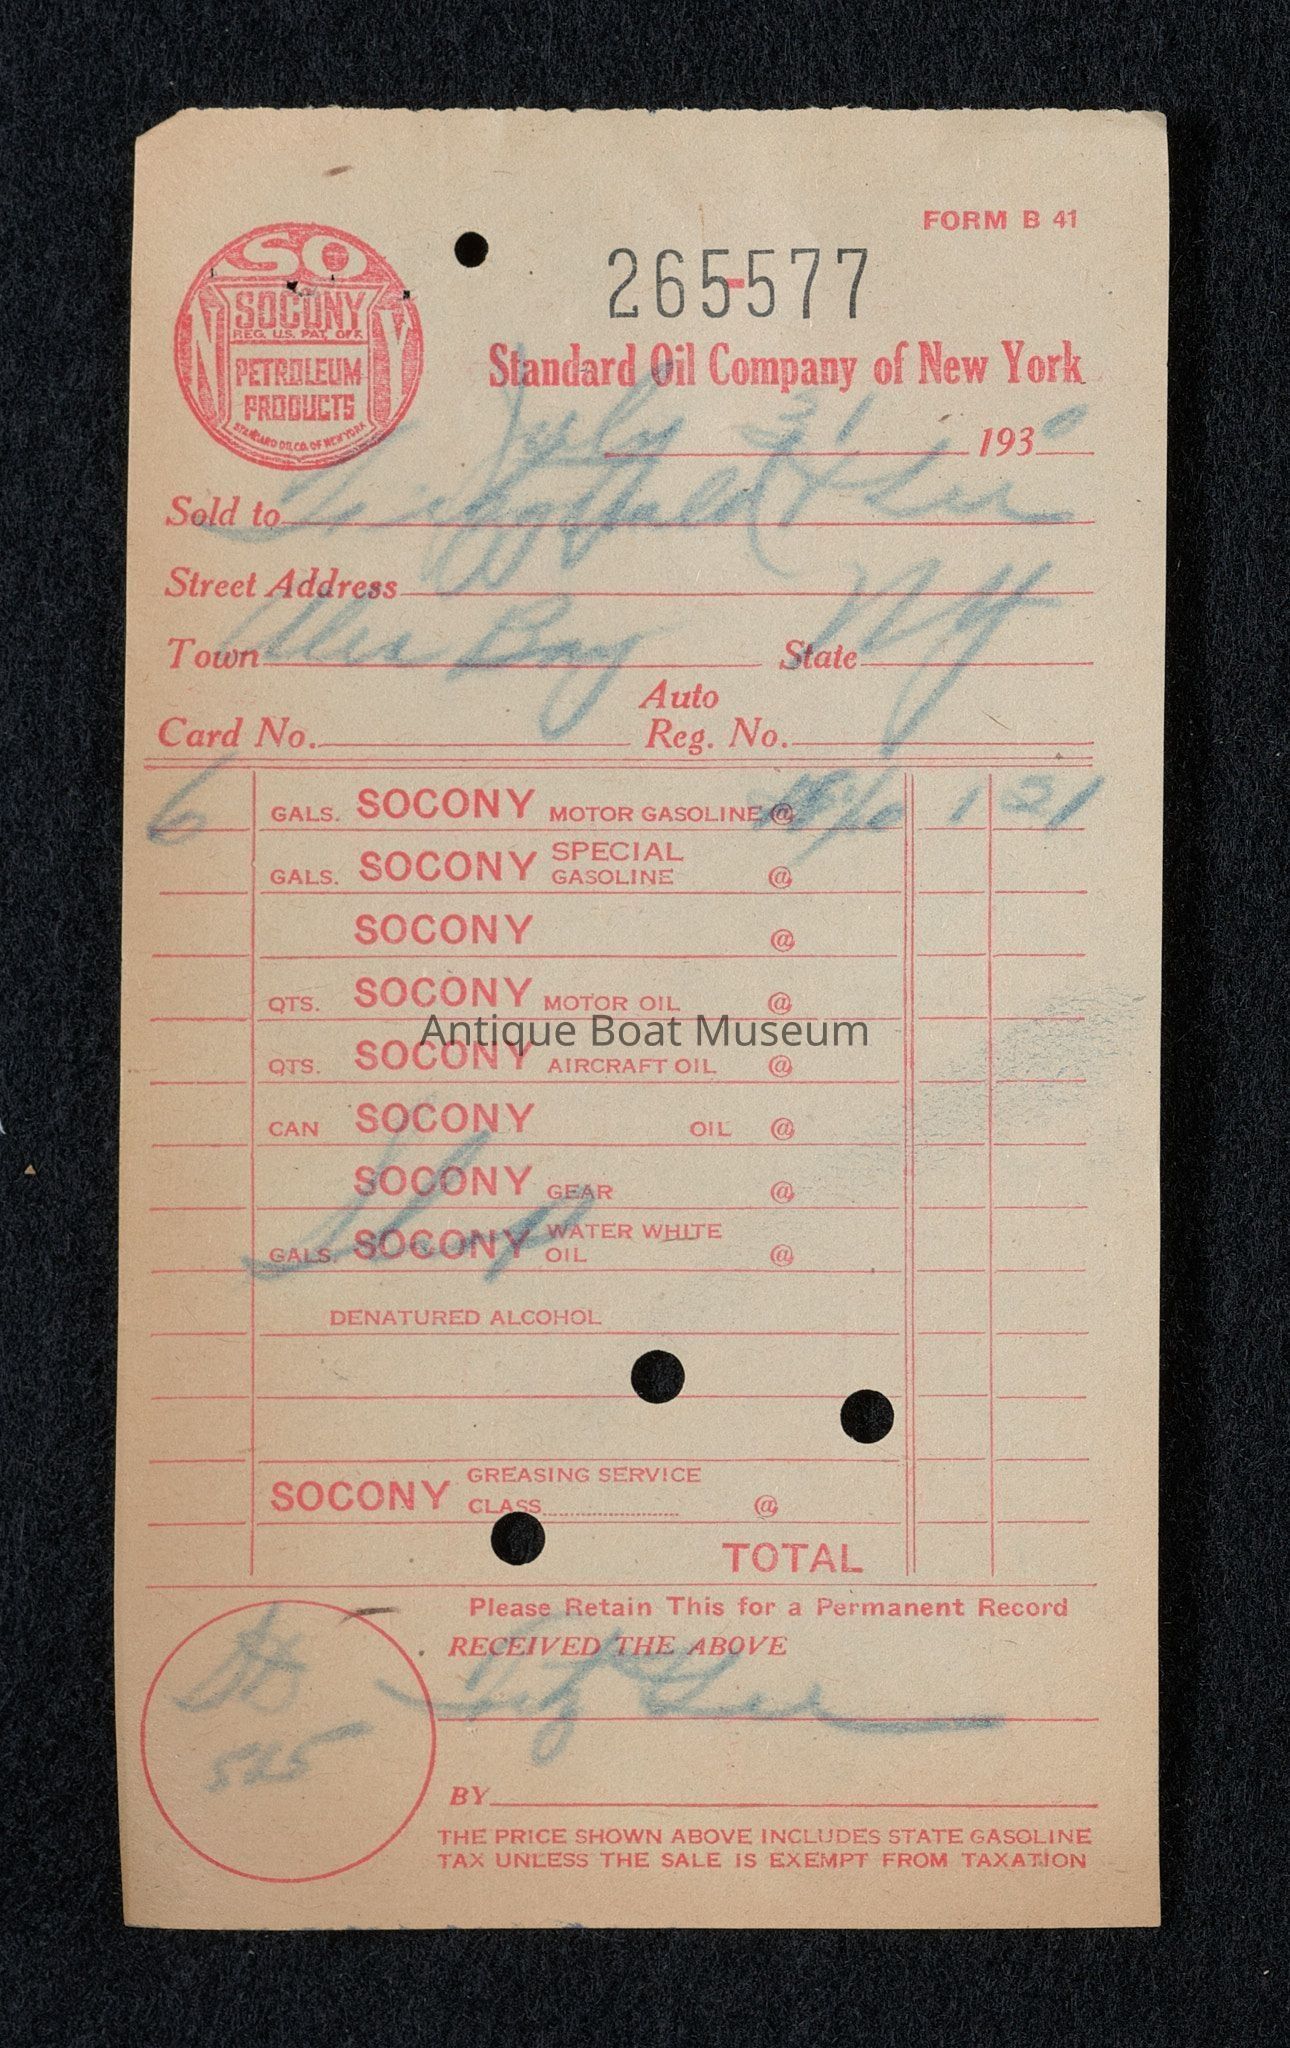 FORM B 41
SO
N SOCONY Y
REG. U.S. PAT. OFF.
PETROLEUM
PRODUCTS
STANDARD OIL CO. OF NEW YORK
265-577
Standard Oil Company of New York
July 31 1930
Sold to Fitzgerald & Lee
Street Address
Town Alex Bay State NY
Card No. Auto Reg. No.
6 GALS. SOCONY MOTOR GASOLINE @ 1 21
GALS. SOCONY SPECIAL GASOLINE @
SOCONY @
QTS. SOCONY MOTOR OIL @
Antique Boat Museum
QTS. SOCONY AIRCRAFT OIL @
CAN SOCONY OIL @
SOCONY GEAR @
GALS. SOCONY WATER WHITE OIL @
DENATURED ALCOHOL
SOCONY GREASING SERVICE
CLASS @
TOTAL
Please Retain This for a Permanent Record
RECEIVED THE ABOVE
Fitz & Lee
525
BY
THE PRICE SHOWN ABOVE INCLUDES STATE GASOLINE
TAX UNLESS THE SALE IS EXEMPT FROM TAXATION